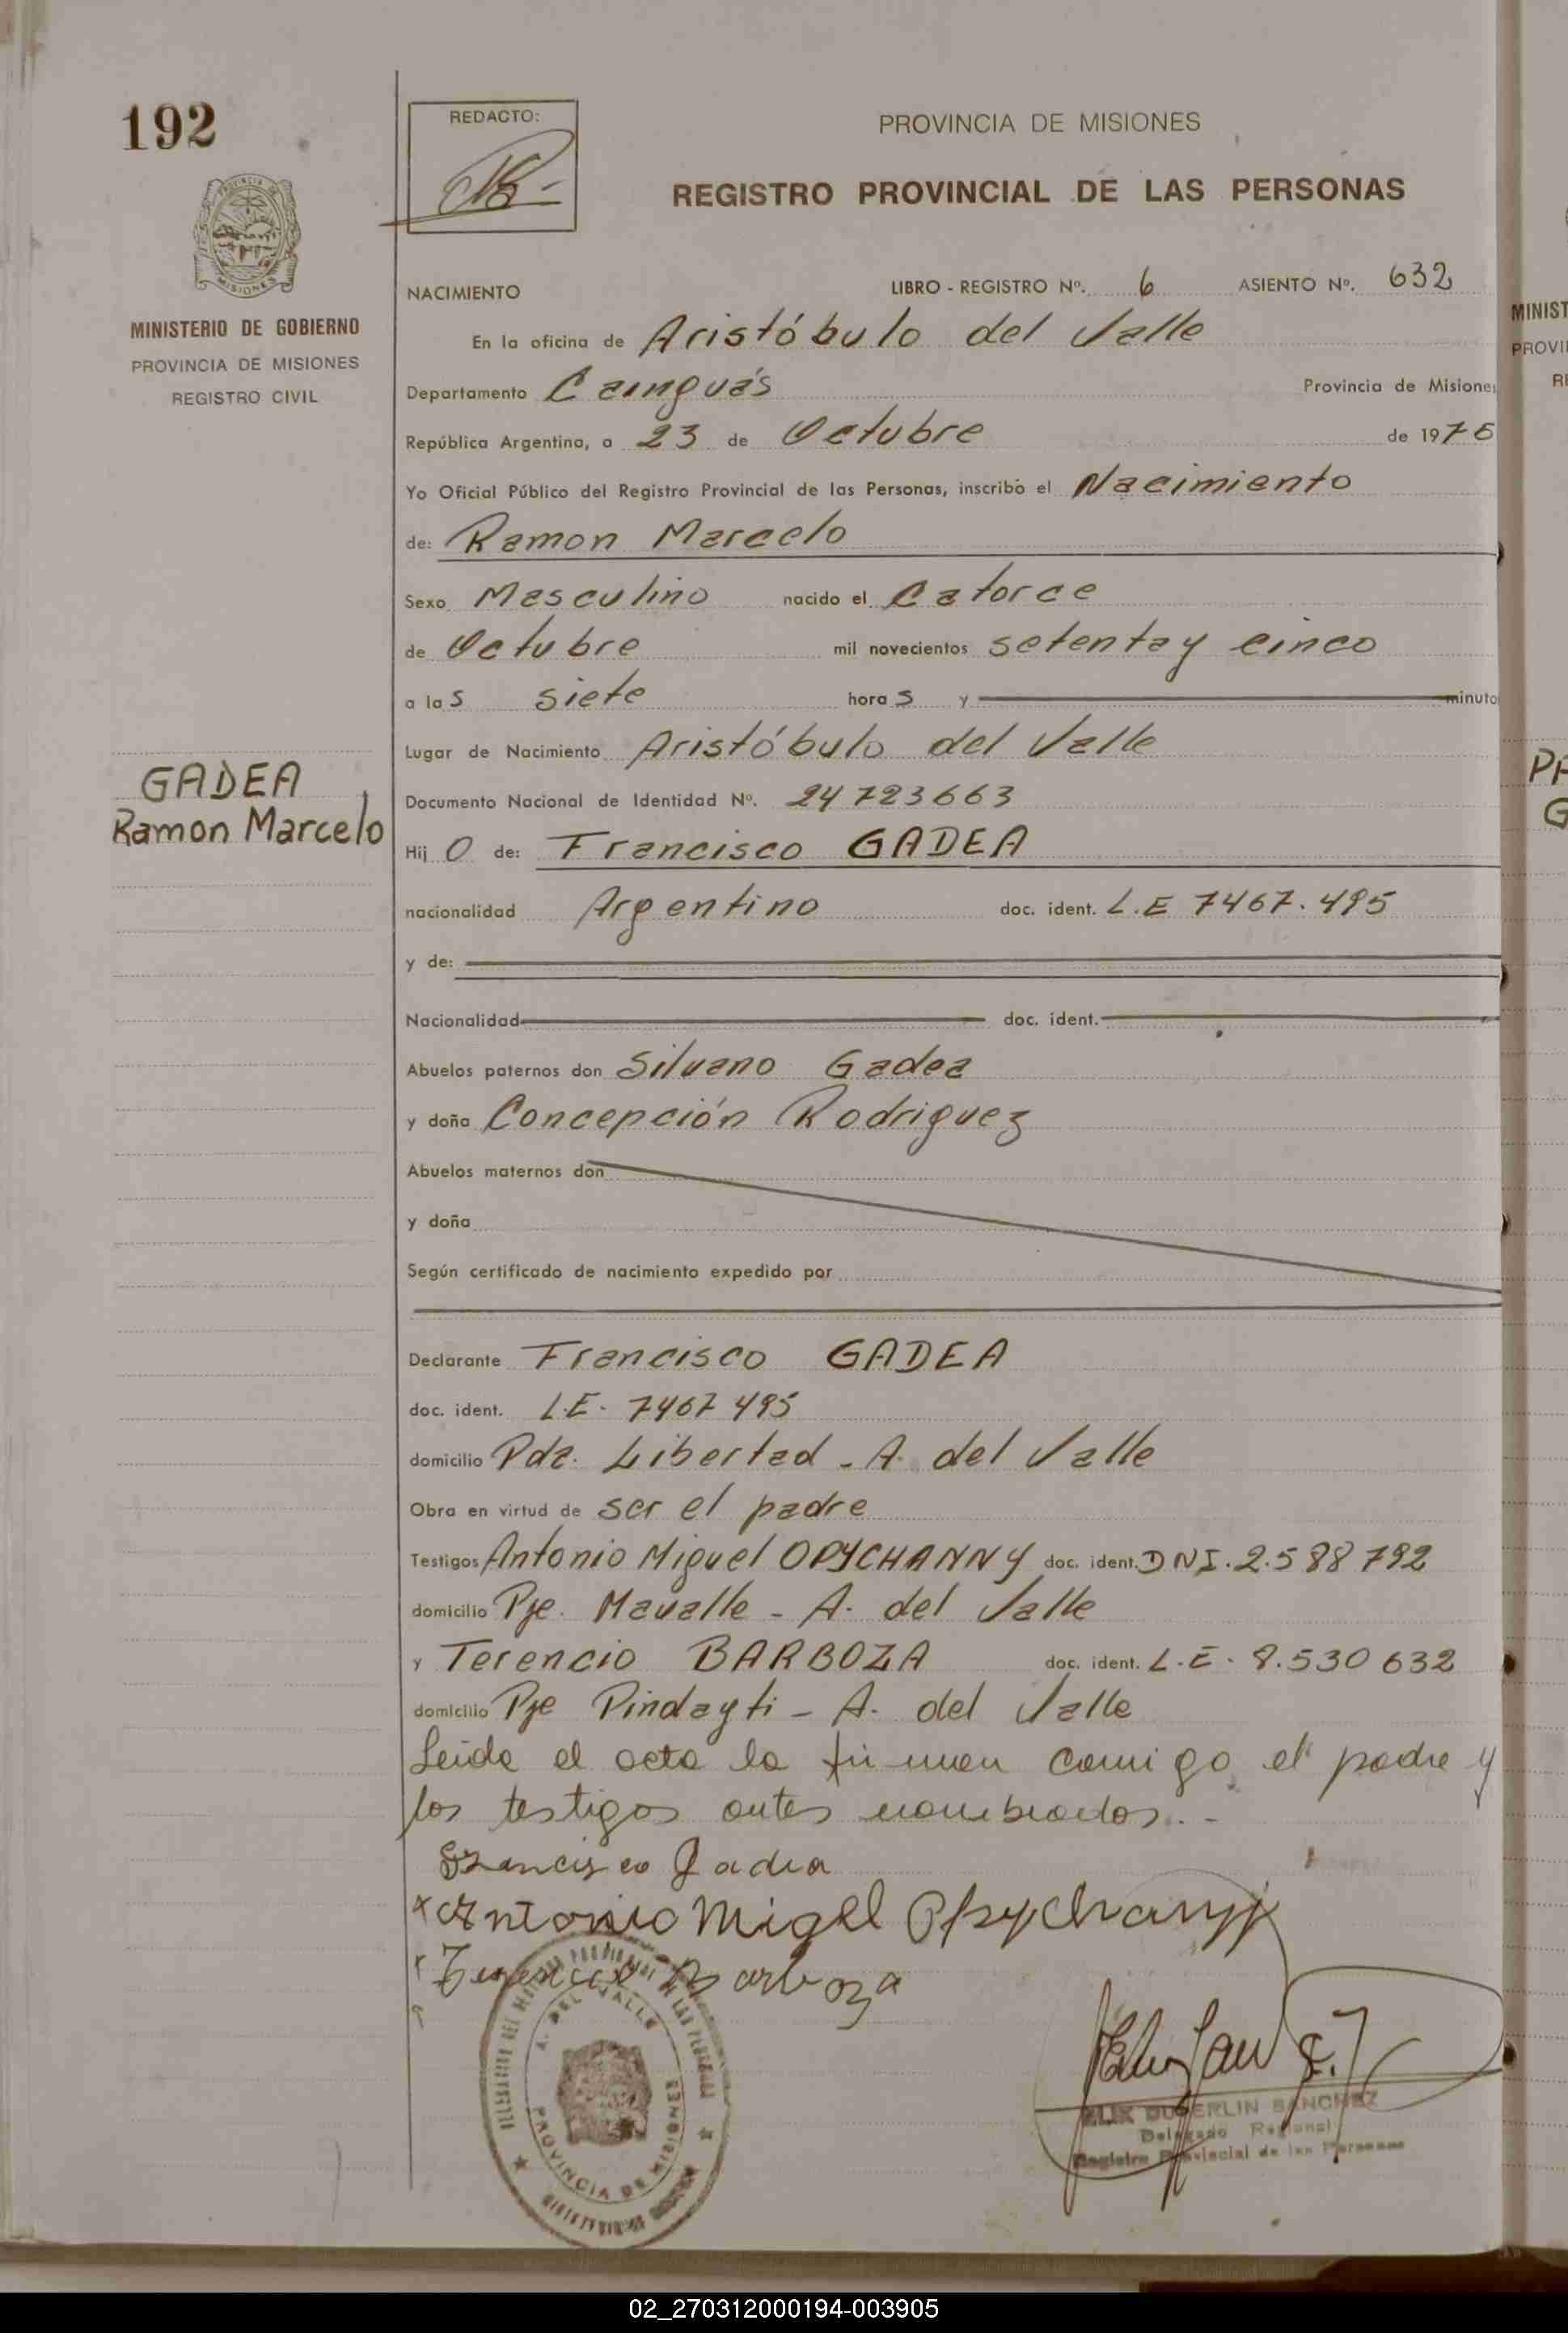 192
REDACTO:
PROVINCIA DE MISIONES
REGISTRO PROVINCIAL DE LAS PERSONAS
MINISTERIO DE GOBIERNO
PROVINCIA DE MISIONES
REGISTRO CIVIL
NACIMIENTO LIBRO - REGISTRO Nº. 6 ASIENTO Nº. 632
En la oficina de Aristóbulo del Valle
Departamento Cainguás Provincia de Misione
República Argentina, a 23 de Octubre de 1975
Yo Oficial Público del Registro Provincial de las Personas, inscribo el Nacimiento
de: Ramon Marcelo
Sexo Masculino nacido el Catorce
de Octubre mil novecientos setenta y cinco
a las siete horas y minuto
Lugar de Nacimiento Aristóbulo del Valle
GADEA
Ramon Marcelo
Documento Nacional de Identidad Nº. 24723663
Hijo de: Francisco GADEA
nacionalidad Argentino doc. ident. L.E 7467.495
y de:
Nacionalidad doc. ident.
Abuelos paternos don Silvano Gadea
y doña Concepción Rodriguez
Abuelos maternos don
y doña
Según certificado de nacimiento expedido por
Declarante Francisco GADEA
doc. ident. L.E. 7467 495
domicilio Pda. Libertad - A. del Valle
Obra en virtud de ser el padre
Testigos Antonio Miguel OPYCHANNY doc. ident. DNI. 2.588792
domicilio Pje. Mavalle - A. del Valle
y Terencio BARBOZA doc. ident. L.E. 8.530632
domicilio Pje Pindayti - A. del Valle
Leida el acta la firman comigo el padre y
los testigos antes nombrados.-
Francisco Gadea
Antonio Migel Opychanyj
Terencio Barboza
A. DEL VALLE
PROVINCIA DE MISIONES
SANCHEZ
Delegado Regional
Registro Provincial de las Personas
MINIST
PROVI
RE
02_270312000194-003905